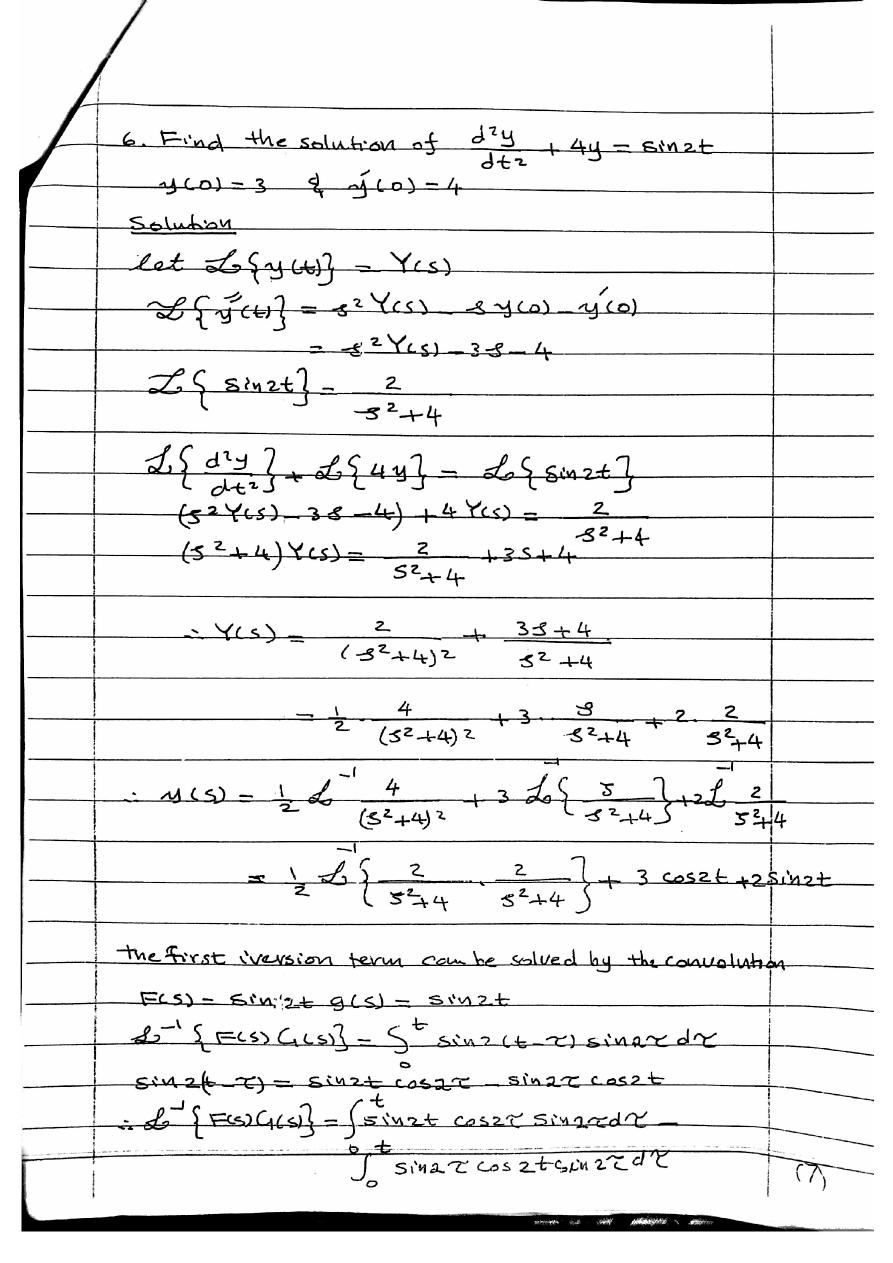 6. Find the solution of d²y/dt² + 4y = sin2t
y(0) = 3 & y'(0) = 4
Solution
let ℒ{y(t)} = Y(s)
ℒ{y''(t)} = s²Y(s) - sy(0) - y'(0)
= s²Y(s) - 3s - 4
ℒ{sin2t} = 2/(s²+4)
ℒ{d²y/dt²} + ℒ{4y} = ℒ{sin2t}
(s²Y(s) - 3s - 4) + 4Y(s) = 2/(s²+4)
(s²+4)Y(s) = 2/(s²+4) + 3s + 4
∴ Y(s) = 2/(s²+4)² + (3s+4)/(s²+4)
= ½ · 4/(s²+4)² + 3 · s/(s²+4) + 2 · 2/(s²+4)
∴ y(s) = ½ ℒ⁻¹ 4/(s²+4)² + 3 ℒ⁻¹{s/(s²+4)} + 2ℒ⁻¹ 2/(s²+4)
= ½ ℒ⁻¹{2/(s²+4) · 2/(s²+4)} + 3 cos2t + 2sin2t
The first iversion term can be solved by the convolution
F(s) = sin2t g(s) = sin2t
ℒ⁻¹{F(s)G(s)} = ∫₀ᵗ sin2(t-τ) sin2τ dτ
sin2(t-τ) = sin2t cos2τ - sin2τ cos2t
∴ ℒ⁻¹{F(s)G(s)} = ∫₀ᵗ sin2t cos2τ sin2τdτ -
∫₀ᵗ sin2τ cos2t sin2τdτ
(7)